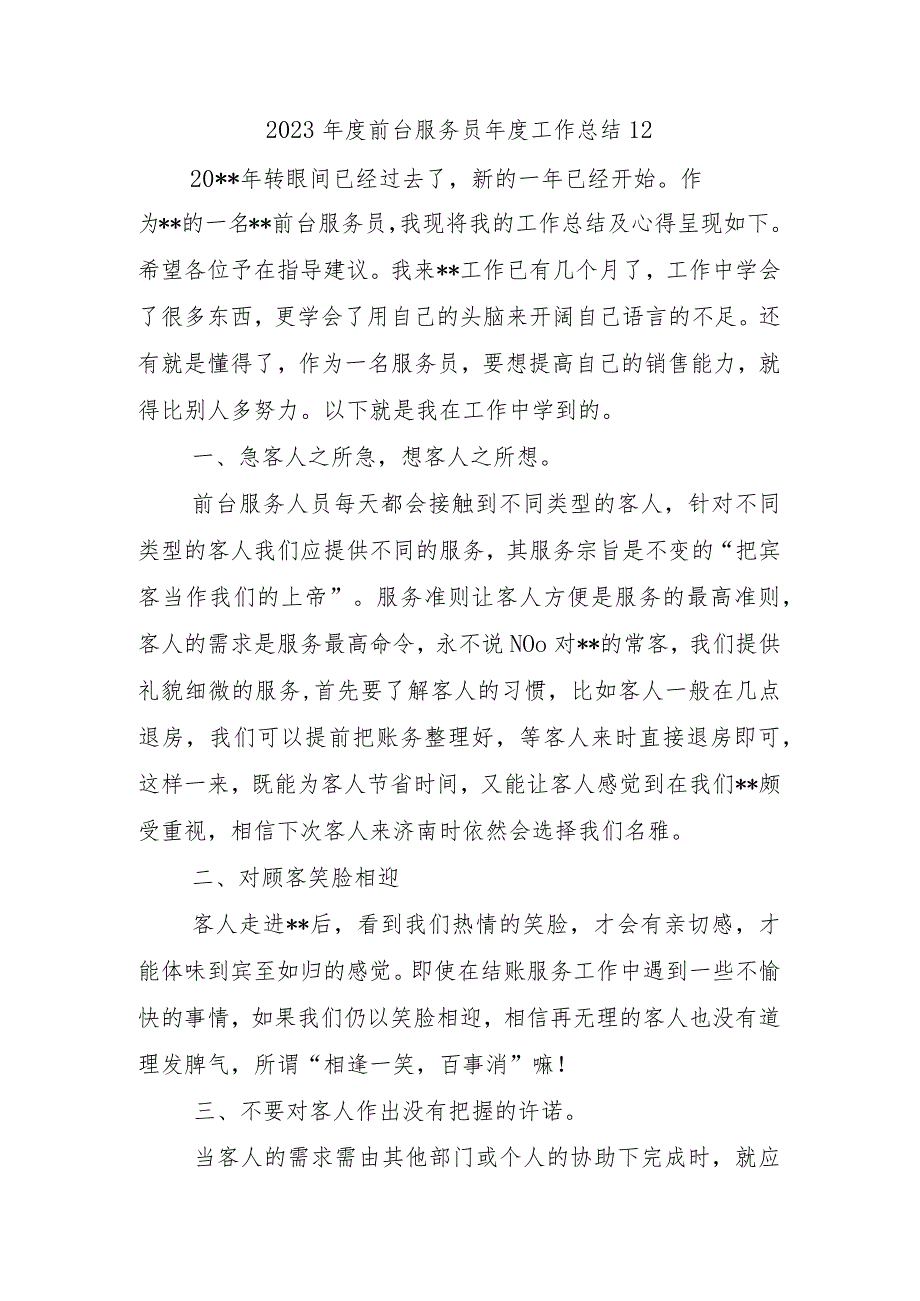 2023 年度前台服务员年度工作总结 12
20**年转眼间已经过去了，新的一年已经开始。作
为**的一名**前台服务员,我现将我的工作总结及心得呈现如下。
希望各位予在指导建议。我来**工作已有几个月了，工作中学会
了很多东西，更学会了用自己的头脑来开阔自己语言的不足。还
有就是懂得了，作为一名服务员，要想提高自己的销售能力，就
得比别人多努力。以下就是我在工作中学到的。
一、急客人之所急，想客人之所想。
前台服务人员每天都会接触到不同类型的客人，针对不同
类型的客人我们应提供不同的服务，其服务宗旨是不变的“把宾
客当作我们的上帝”。服务准则让客人方便是服务的最高准则，
客人的需求是服务最高命令，永不说 NOo 对**的常客，我们提供
礼貌细微的服务,首先要了解客人的习惯，比如客人一般在几点
退房，我们可以提前把账务整理好，等客人来时直接退房即可，
这样一来，既能为客人节省时间，又能让客人感觉到在我们**颇
受重视，相信下次客人来济南时依然会选择我们名雅。
二、对顾客笑脸相迎
客人走进**后，看到我们热情的笑脸，才会有亲切感，才
能体味到宾至如归的感觉。即使在结账服务工作中遇到一些不愉
快的事情，如果我们仍以笑脸相迎，相信再无理的客人也没有道
理发脾气，所谓“相逢一笑，百事消”嘛！
三、不要对客人作出没有把握的许诺。
当客人的需求需由其他部门或个人的协助下完成时，就应